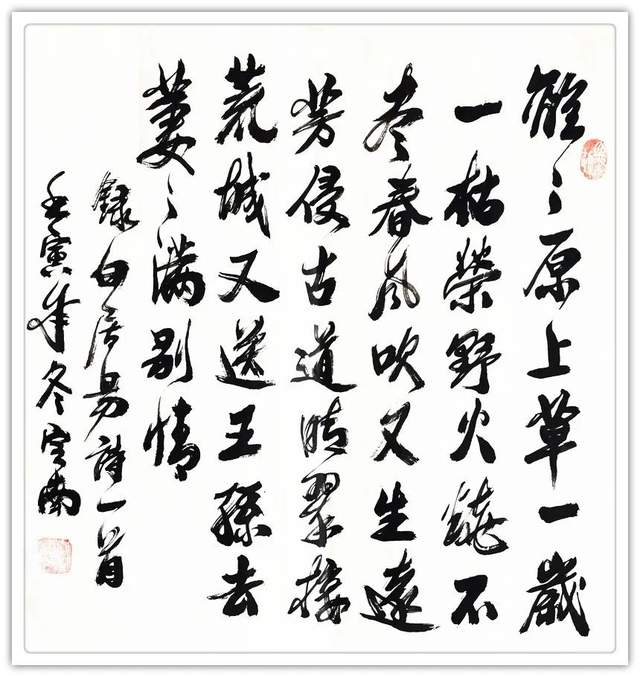 離〻原上草一歲
一枯榮野火燒不
尽春風吹又生遠
芳侵古道晴翠接
荒城又送王孫去
萋〻滿別情
録白居易詩一首
壬寅年冬南